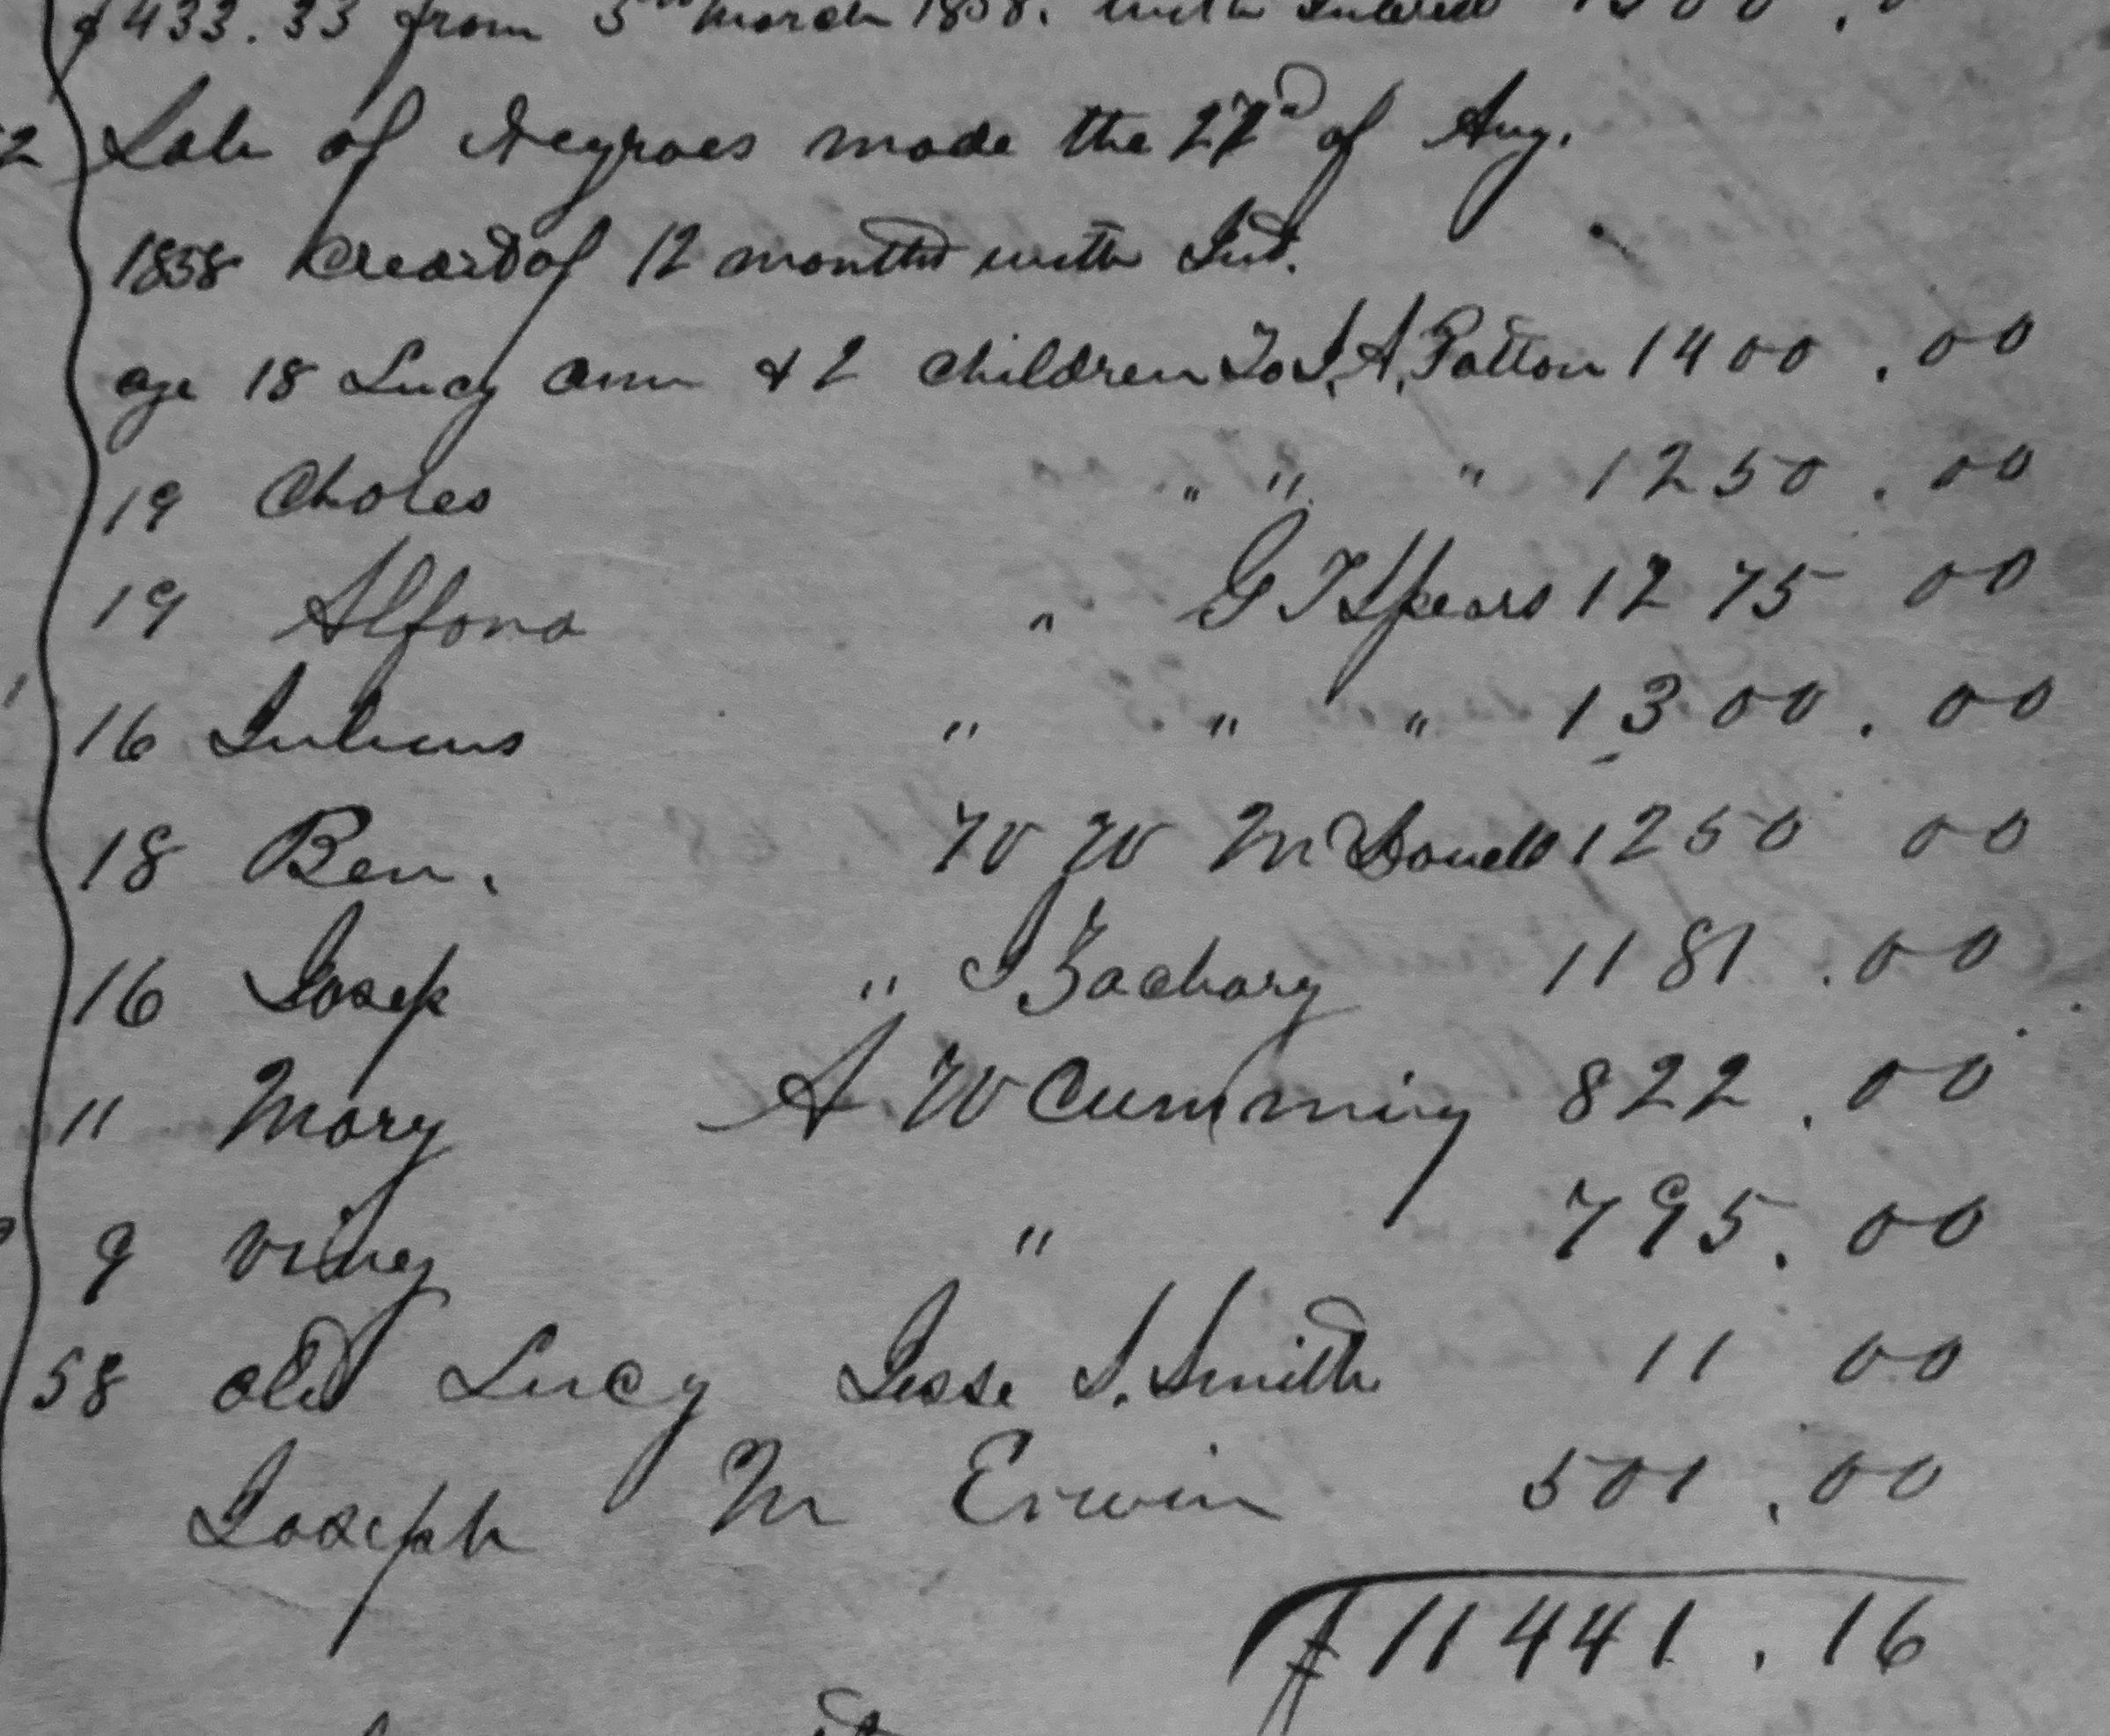 $433.33 from 5th March 1858. with Interest 1500.0
Sale of Negroes made the 22d of Aug.
1858 Creardof 12 months with Int.
age 18 Lucy Ann & 2 children To J. A. Patton 1400.00
19 Choles " " " 1250.00
19 Alfona " G T Spears 1275 00
16 Julious " " " 1300.00
18 Ben. W W McDowell 1250 00
16 Josep " J Zachary 1181.00
11 Mary A W Cumming 822.00
9 Viney " 795.00
58 old Lucy Jesse S. Smith 11 00
Joseph M Erwin 501.00
$11441.16